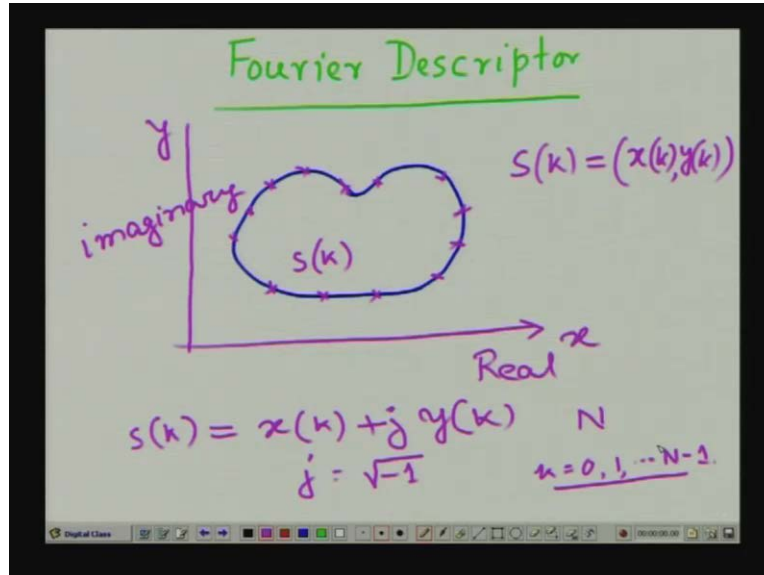 Fourier Descriptor
y
imaginary
S(k) = (x(k), y(k))
s(k)
Real x
s(k) = x(k) + j y(k) N
j = √-1
k = 0, 1, ... N-1.
Digital Class
00:00:00.00